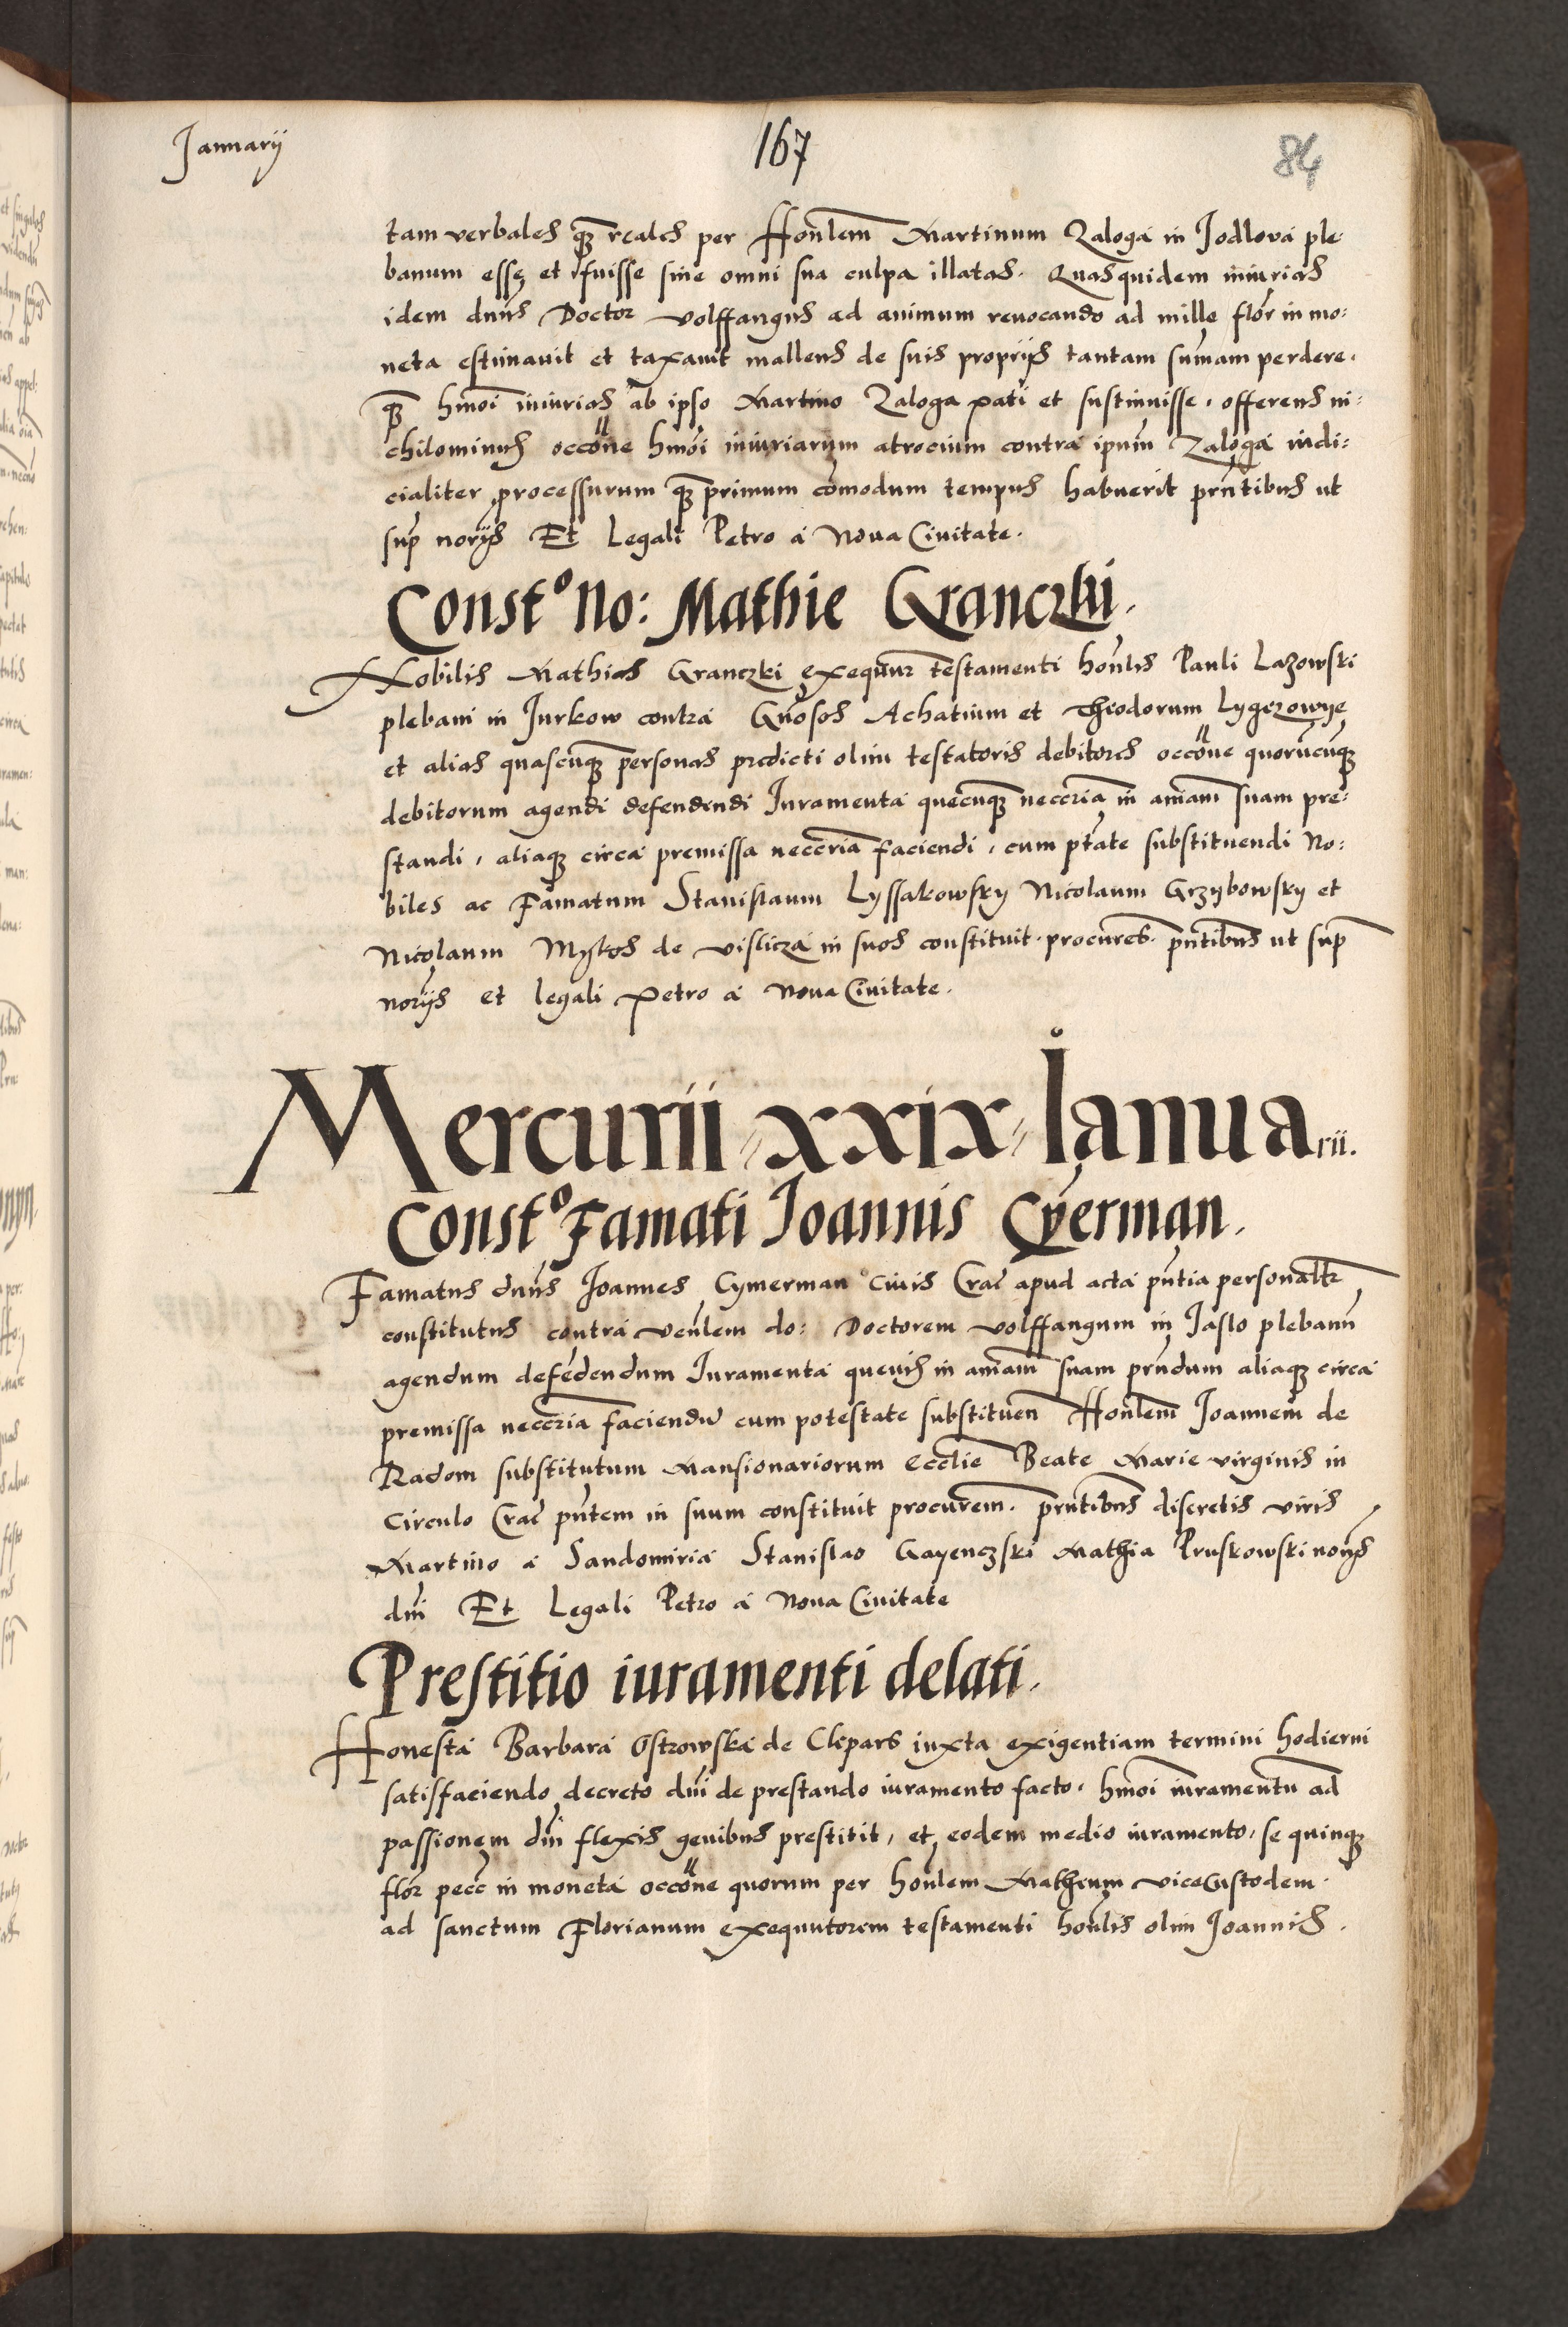 Januarij
167
84
tam verbales q̃ʒ reales per Honlem̃ Martinum Zaloga in Jodlova ple
banum esse et fuisse sine omni sua culpa illatas. Quas quidem iniurias
idem dnũs Doctor Volffangus ad animum revocando ad mille flor̃ in mo:
neta estimavit et taxavit mallens de suis proprijs tantam sum̃am perdere.
q̃ʒ hmõi iniurias ab ipso Martino Zaloga pati et sustinuisse. offerens ni:
chilominus occõne hmõi iniuriarum atrocium contra ipum̃ Zaloga iudi:
cialiter processurum q̃ʒ primum com̃odum tempus habuerit prñtibus ut
sup̃ norĩjs Et Legali Petro a Nova Civitate.
Const⁰ No: Mathie Granczki.
Nobilis Mathias Granczki exequũr testamenti honlĩs Pauli Lazowski
plebani in Jurkow contra Gnõsos Achatium et Theodorum Lygezowye
et alias quascũqʒ personas predicti olim testatoris debitores occõne quorũcũqʒ
debitorum agendi defendendi Juramenta quecũqʒ neccrĩa in anĩam suam pre:
standi, aliaqʒ circa premissa neccerĩa faciendi, cum ptãte substituendi No:
biles ac Famatum Stanislaum Lyssakowsky Nicolaum Grzybowsky et
Nicolaum Mykos de Vislicza in suos constituit procures. pñtibus ut sup̃
norĩjs et legali Petro a Nova Civitate.
Mercurii xxix Ianuarii.
Const⁰ Famati Joannis Cỹerman.
Famatus dnũs Joannes Cymerman Civis Crac̃ apud acta pñtia personalt̃r
constitutus contra venlẽm do: Doctorem Volffangum in Jaslo plebanũ
agendum defẽdendum Juramenta quevis in anĩam suam prñdum aliaqʒ circa
premissa neccerĩa faciendũ cum potestate substituen̄ Honlem̃ Joannem de
Radom substitutum Mansionariorum Eccl̃ie Beate Marie virginis in
Circulo Crac̃ pñtem in suum constituit procurem̃. prñtibus discretis viris
Martino a Sandomiria Stanislao Gayenczski Mathia Pruskowski norĩjs
dnĩ Et Legali Petro a Nova Civitate
Prestitio iuramenti delati.
Honesta Barbara Ostrowska de Clepars iuxta exigentiam termini hodierni
satisfaciendo decreto dnĩ de prestando iuramento facto. hmõi iuramentũ ad
passionem dnĩ flexis genibus prestitit, et eodem medio iuramento, se quinqʒ
flor̃ pecc̃ in moneta occõne quorum per honlẽm Matheum viceCustodem
ad sanctum Florianum exequutorem testamenti honlĩs olim Joannis.